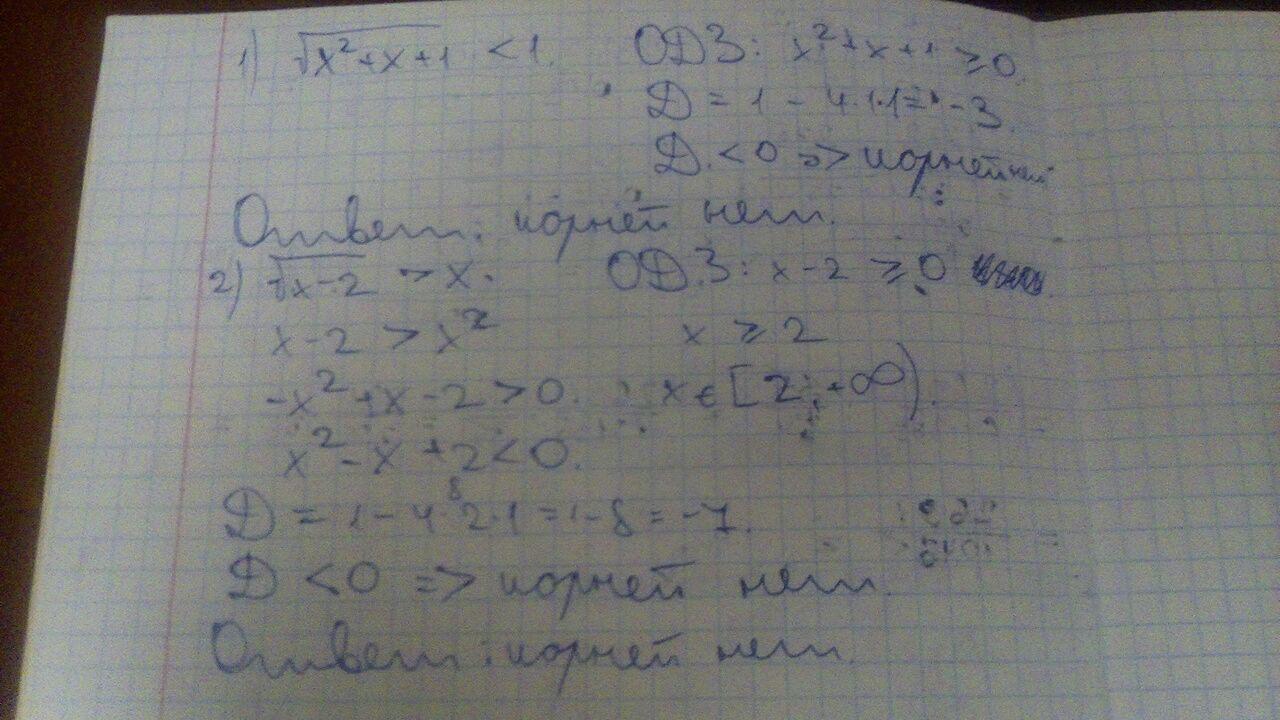 1) √x²+x+1 < 1. ОДЗ: x²+x+1 ≥ 0.
D = 1 - 4·1·1 = -3.
D < 0 => корней нет
Ответ: корней нет.
2) √x-2 > x. ОДЗ: x-2 ≥ 0
x-2 > x² x ≥ 2
-x²+x-2>0. x ∈ [2; +∞).
x²-x+2<0.
D = 1-4·2·1 = 1-8 = -7.
D < 0 => корней нет.
Ответ: корней нет.